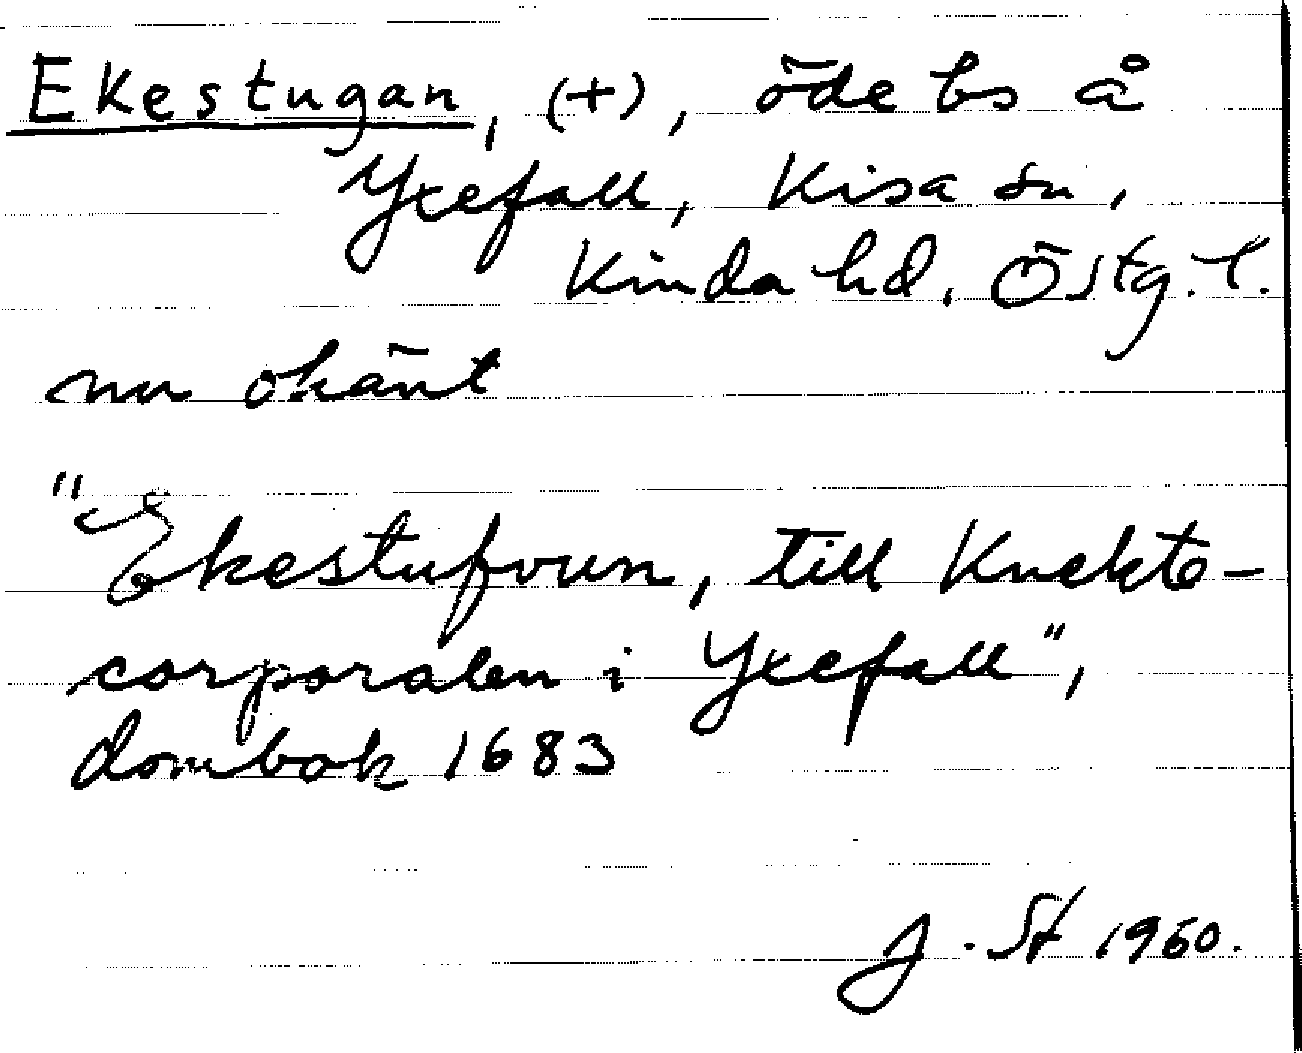 Ekestugan, (+), öde bs å
Yxefall, Kisa sn,
Kinda hd, Östg. l.
nu okänt
"Ekestufvun, till Knekte-
corporalen i Yxefall",
dombok 1683
J. St 1960.